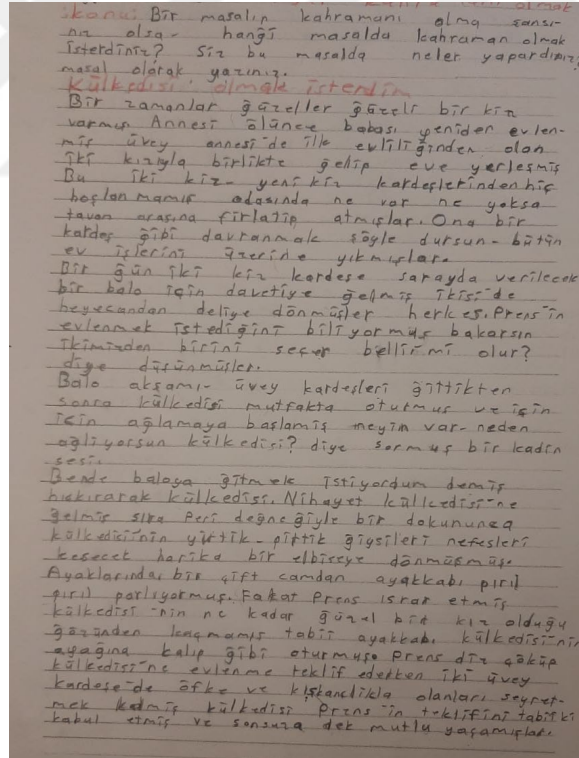 olmak
:konu: Bir masalın kahramanı olma şansı-
nız olsa- hangi masalda kahraman olmak
isterdiniz? Siz bu masalda neler yapardınız?
masal olarak yazınız.
Külkedisi: olmak isterdim
Bir zamanlar güzeller güzeli bir kız
varmış Annesi ölünce babası yeniden evlen-
miş üvey annesi'de ilk evliliğinden olan
iki kızıyla birlikte gelip eve yerleşmiş
Bu iki kız- yeni kız kardeşlerinden hiç
hoşlanmamış odasında ne var ne yoksa
tavan arasına fırlatıp atmışlar. Ona bir
kardeş gibi davranmak şöyle dursun- bütün
ev işlerini üzerine yıkmışlar.
Bir gün iki kız kardeşe sarayda verilecek
bir balo için davetiye gelmiş ikisi'de
heyecandan deliye dönmüşler herkes. Prens'in
evlenmek istediğini biliyormuş bakarsın
ikimizden birini seçer bellirmi olur?
diye düşünmüşler.
Balo akşamı- üvey kardeşleri gittikten
sonra külkedisi mutfakta oturmuş ve için
için ağlamaya başlamış neyin var- neden
ağlıyorsun külkedisi? diye sormuş bir kadın
sesi.
Bende baloya gitmek istiyordum demiş
hıçkırarak külkedisi. Nihayet külkedisi-ne
gelmiş sıra peri değneğiyle bir dokununca
külkedicinin yırtık-pırtık giysileri nefesleri
kesecek harika bir elbiseye dönmüşmüş.
Ayaklarında bir çift camdan ayakkabı pırıl
pırıl parlıyormuş. Fakat prens ısrar etmiş
külkedisi-nin ne kadar güzel bir kız olduğu
gözünden kaçmamış tabii ayakkabı külkedisi'nin
ayağına kalıp gibi oturmuş. Prens diz çöküp
külkedisi'ne evlenme teklif ederken iki üvey
kardeşe'de öfke ve kıskançlıkla olanları seyret-
mek kalmış külkedisi prens'in teklifini tabiiki
kabul etmiş ve sonsuza dek mutlu yaşamışlar.